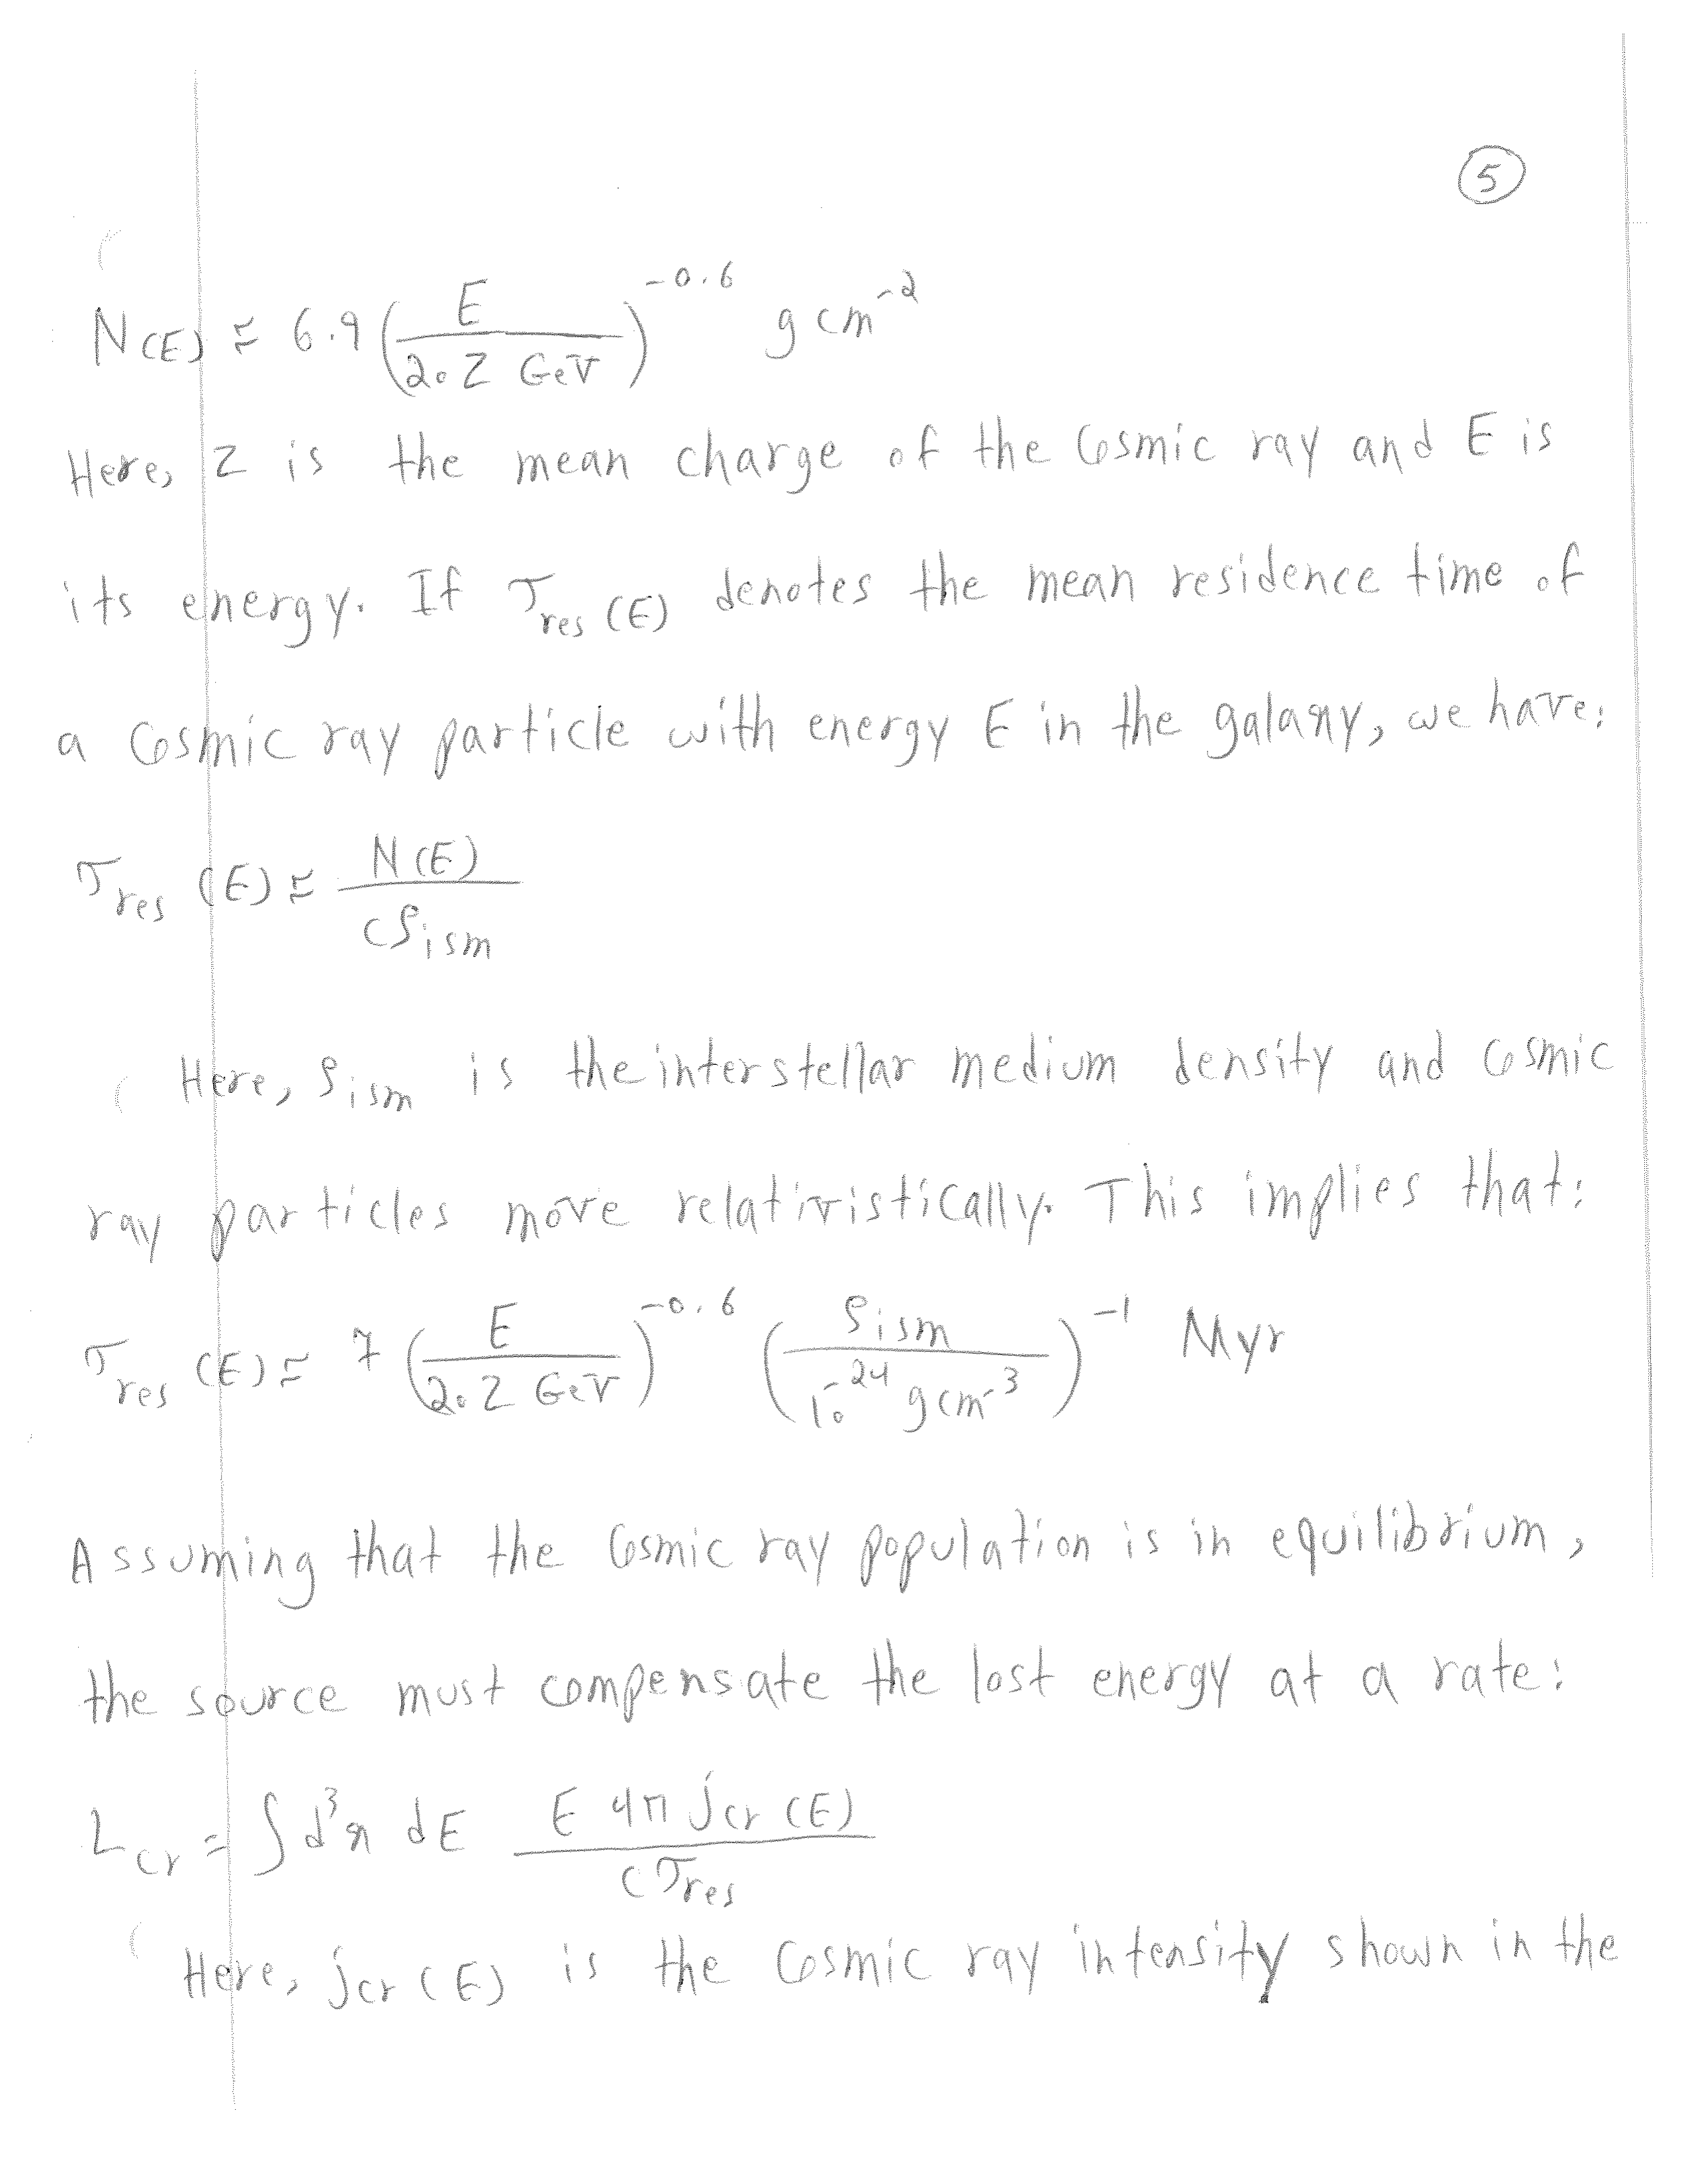 5
N(E) ≈ 6.9 (E / 20 Z GeV)^-0.6 g cm^-2
Here, Z is the mean charge of the cosmic ray and E is
its energy. If τ_res (E) denotes the mean residence time of
a cosmic ray particle with energy E in the galaxy, we have:
τ_res (E) ≈ N(E) / cρ_ism
Here, ρ_ism is the interstellar medium density and cosmic
ray particles move relativistically. This implies that:
τ_res (E) ≈ 7 (E / 20 Z GeV)^-0.6 (ρ_ism / 10^-24 g cm^-3)^-1 Myr
Assuming that the cosmic ray population is in equilibrium,
the source must compensate the lost energy at a rate:
L_cr = ∫ d^3x dE E 4π j_cr (E) / cτ_res
Here, j_cr (E) is the cosmic ray intensity shown in the